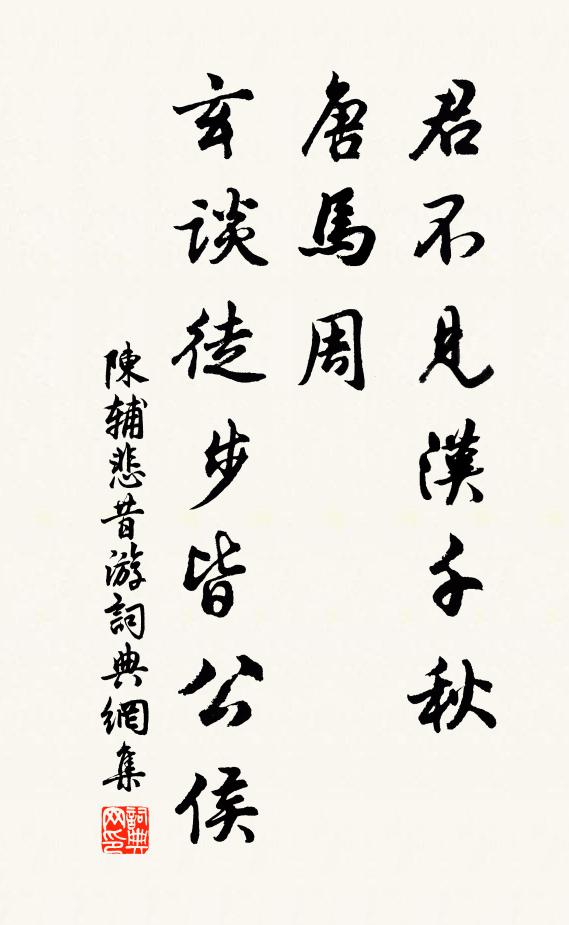 君不見漢千秋
唐馬周
玄談徒步皆公侯
陳輔悲昔游詞典網集
詞典网印